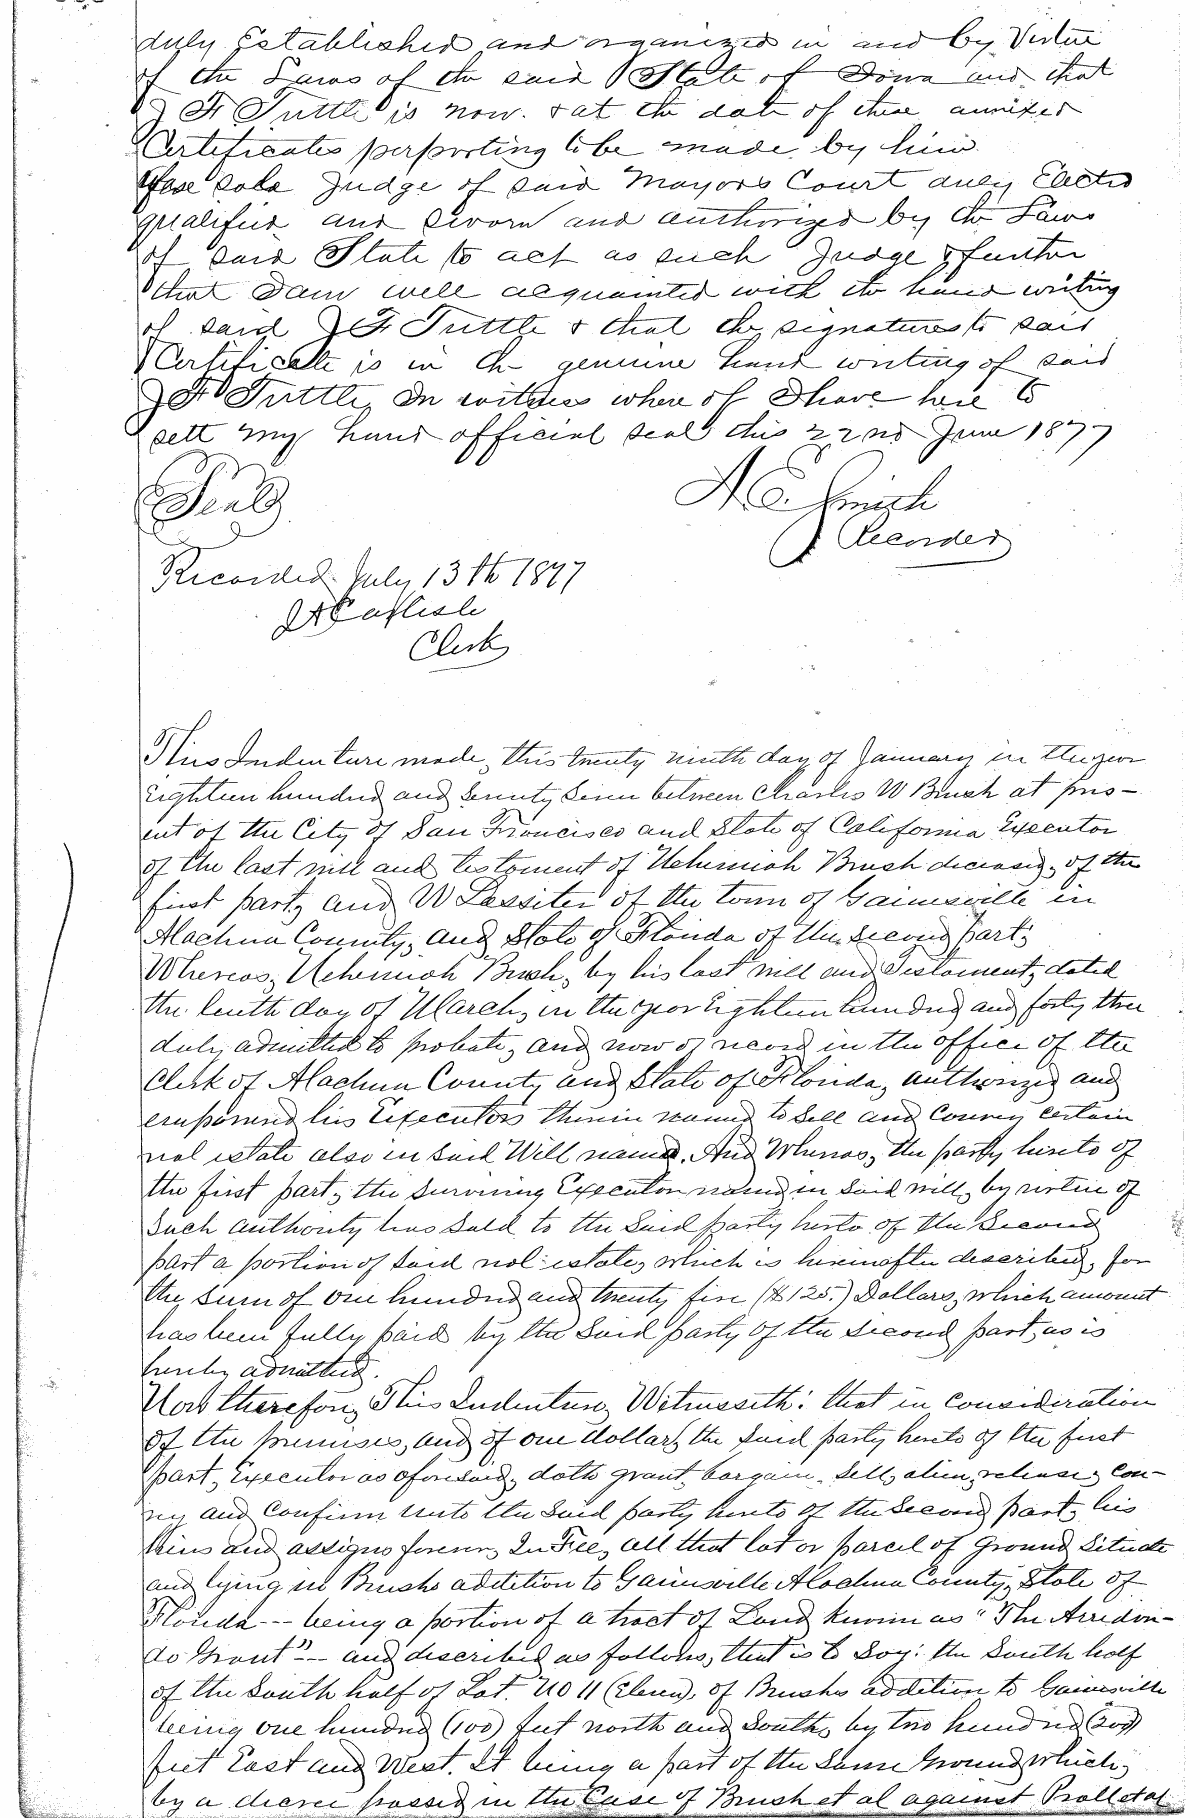 duly Established and organized in and by Virtue
of the Laws of the said State of Iowa and that
J F Tuttle is now & at the date of these annexed
Certificates perporting to be made by him
sole Judge of said Mayors Court duly Elected
qualified and sworn and authorized by the Laws
of said State to act as such Judge & further
that I am well acquainted with the hand writing
of said J F Tuttle & that the signatures to said
Certificate is in the genuine hand writing of said
J F Tuttle, In witness where of I have here to
sett my hand official seal this 22nd June 1877
Seal
A. E. Smith
Recorder
Recorded July 13th 1877
J A Carlisle
Clerk
This Indenture made, this twenty ninth day of January in the year
Eighteen hundred and seventy seven between Charles W Brush at pres-
ent of the City of San Francisco and State of California Executor
of the last will and testament of Nehemiah Brush deceased, of the
first part, and W Lassiter of the town of Gainesville in
Alachua County, and State of Florida of the second part;
Whereas, Nehemiah Brush, by his last will and Testament, dated
the tenth day of March, in the year Eighteen hundred and forty three
duly admitted to probate, and now of record in the office of the
Clerk of Alachua County and State of Florida, authorized and
empowered his Executors therein named to Sell and Convey certain
real estate also in said Will named. And Whereas, the party hereto of
the first part, the surviving Executor named in said will, by virtue of
such authority has sold to the said party hereto of the Second
part a portion of said real estate, which is hereinafter described, for
the sum of one hundred and twenty five ($125.) Dollars, which amount
has been fully paid by the said party of the second part, as is
hereby admitted.
Now therefore, This Indenture, Witnesseth: that in consideration
of the premises, and of one dollar, the said party hereto of the first
part, Executor as aforesaid, doth grant, bargain, sell, alien, release, con-
vey and confirm unto the said party hereto of the second part, his
heirs and assigns forever, In Fee, all that lot or parcel of ground situate
and lying in Brushs addition to Gainesville Alachua County, State of
Florida -- being a portion of a tract of Land known as "The Arredon-
do Grant" -- and described as follows, that is to say: the South half
of the South half of Lot. No 11 (eleven), of Brushs addition to Gainesville
being one hundred (100) feet north and south, by two hundred (200)
feet East and West. It being a part of the same ground which,
by a decree passed in the Case of Brush et al against Prall et al